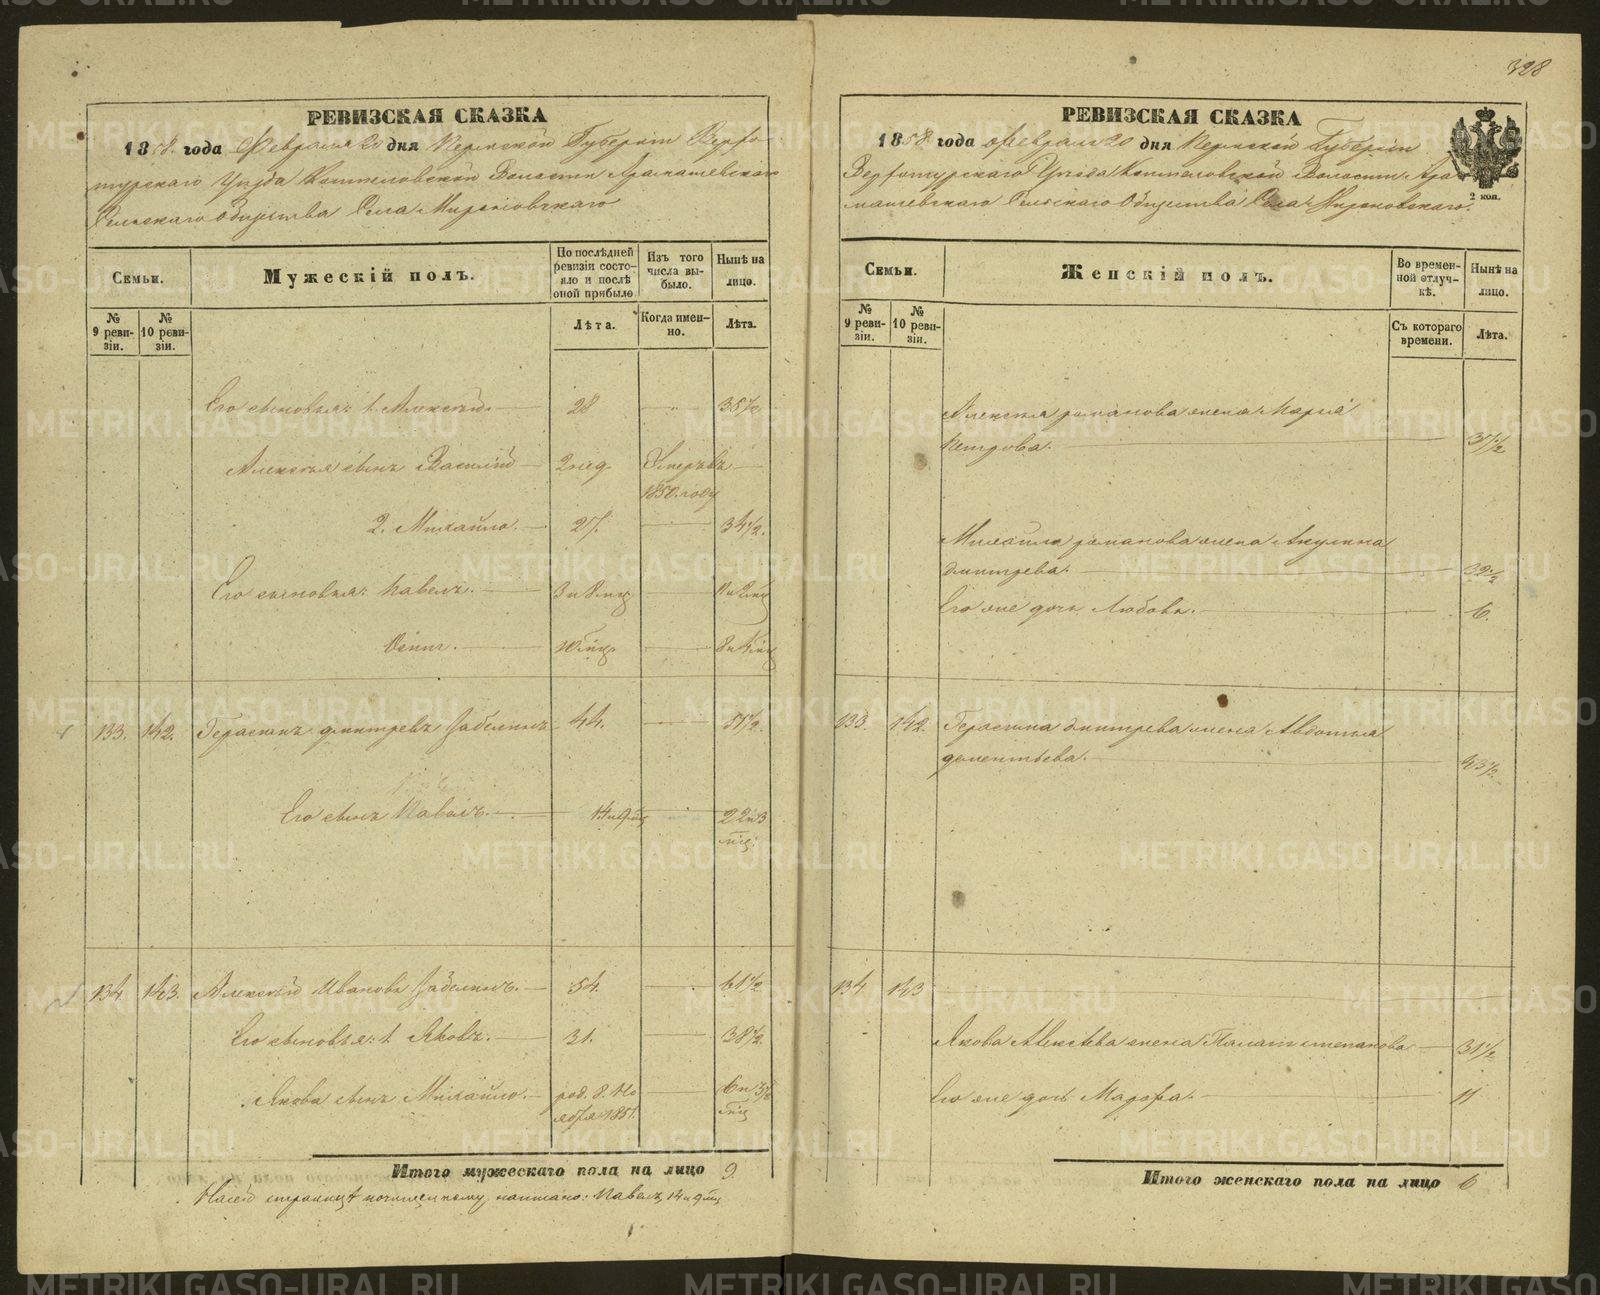 328
РЕВИЗСКАЯ СКАЗКА
1858. года Февраля 20 дня Пермской Губернiи Верхо-
турскаго Уѣзда Коптеловской Волости Арамашевскаго
Сельскаго Общества Села Мироновскаго
Семьи.
Мужескiй полъ.
По послѣдней ревизiи состояло и послѣ оной прибыло
Изъ того числа выбыло.
Нынѣ на лицо.
№ 9 ревизiи.
№ 10 ревизiи.
Лѣта.
Когда именно.
Лѣта.
Его сыновья: 1. Алексѣй. 28 35 1/2
Алексѣя сынъ Василiй 2 нед. Умеръ въ
1850. году
2. Михайло. 27. 34 1/2.
Его сыновья: Павелъ. 3 и 8 мц
Осипъ. 8 и
133. 142. Герасимъ Дмитревъ Забелинъ 44. 51 1/2.
Его сынъ Павелъ. 14 и 9 мц 22 и 3
мц.
134 143. Алексѣй Ивановъ Забелинъ. 54. 61 1/2
Его сыновья: 1 Яковъ. 31. 38 1/2.
Якова сынъ Михайло. род. 8. Но 6 и 3 1/2
ября 1851. мц
Итого мужескаго пола на лицо 9.
На сей страницѣ по чищенному написано: Павелъ 14 и 9 мц
РЕВИЗСКАЯ СКАЗКА
1858. года Февраля 20 дня Пермской Губернiи
Верхотурскаго Уѣзда Коптеловской Волости Ара
машевскаго Сельскаго Общества Села Мироновскаго.
2 коп.
Семьи.
Женскiй полъ.
Во временной отлучкѣ.
Нынѣ на лицо.
№ 9 ревизiи.
№ 10 ревизiи.
Съ котораго времени.
Лѣта.
Алексѣя Романова жена Марья
Петрова. 37 1/2
Михайла Романова жена Акулина
Дмитрева. 32 1/2
Его же дочь Любовь. 6.
133. 142. Герасима Дмитрева жена Авдотья
Дементьева. 43 1/2
134 143
Якова Алексѣева жена Палагея Степанова 31 1/2
Его же дочь Марфа. 11
Итого женскаго пола на лицо 6
METRIKI.GASO-URAL.RU